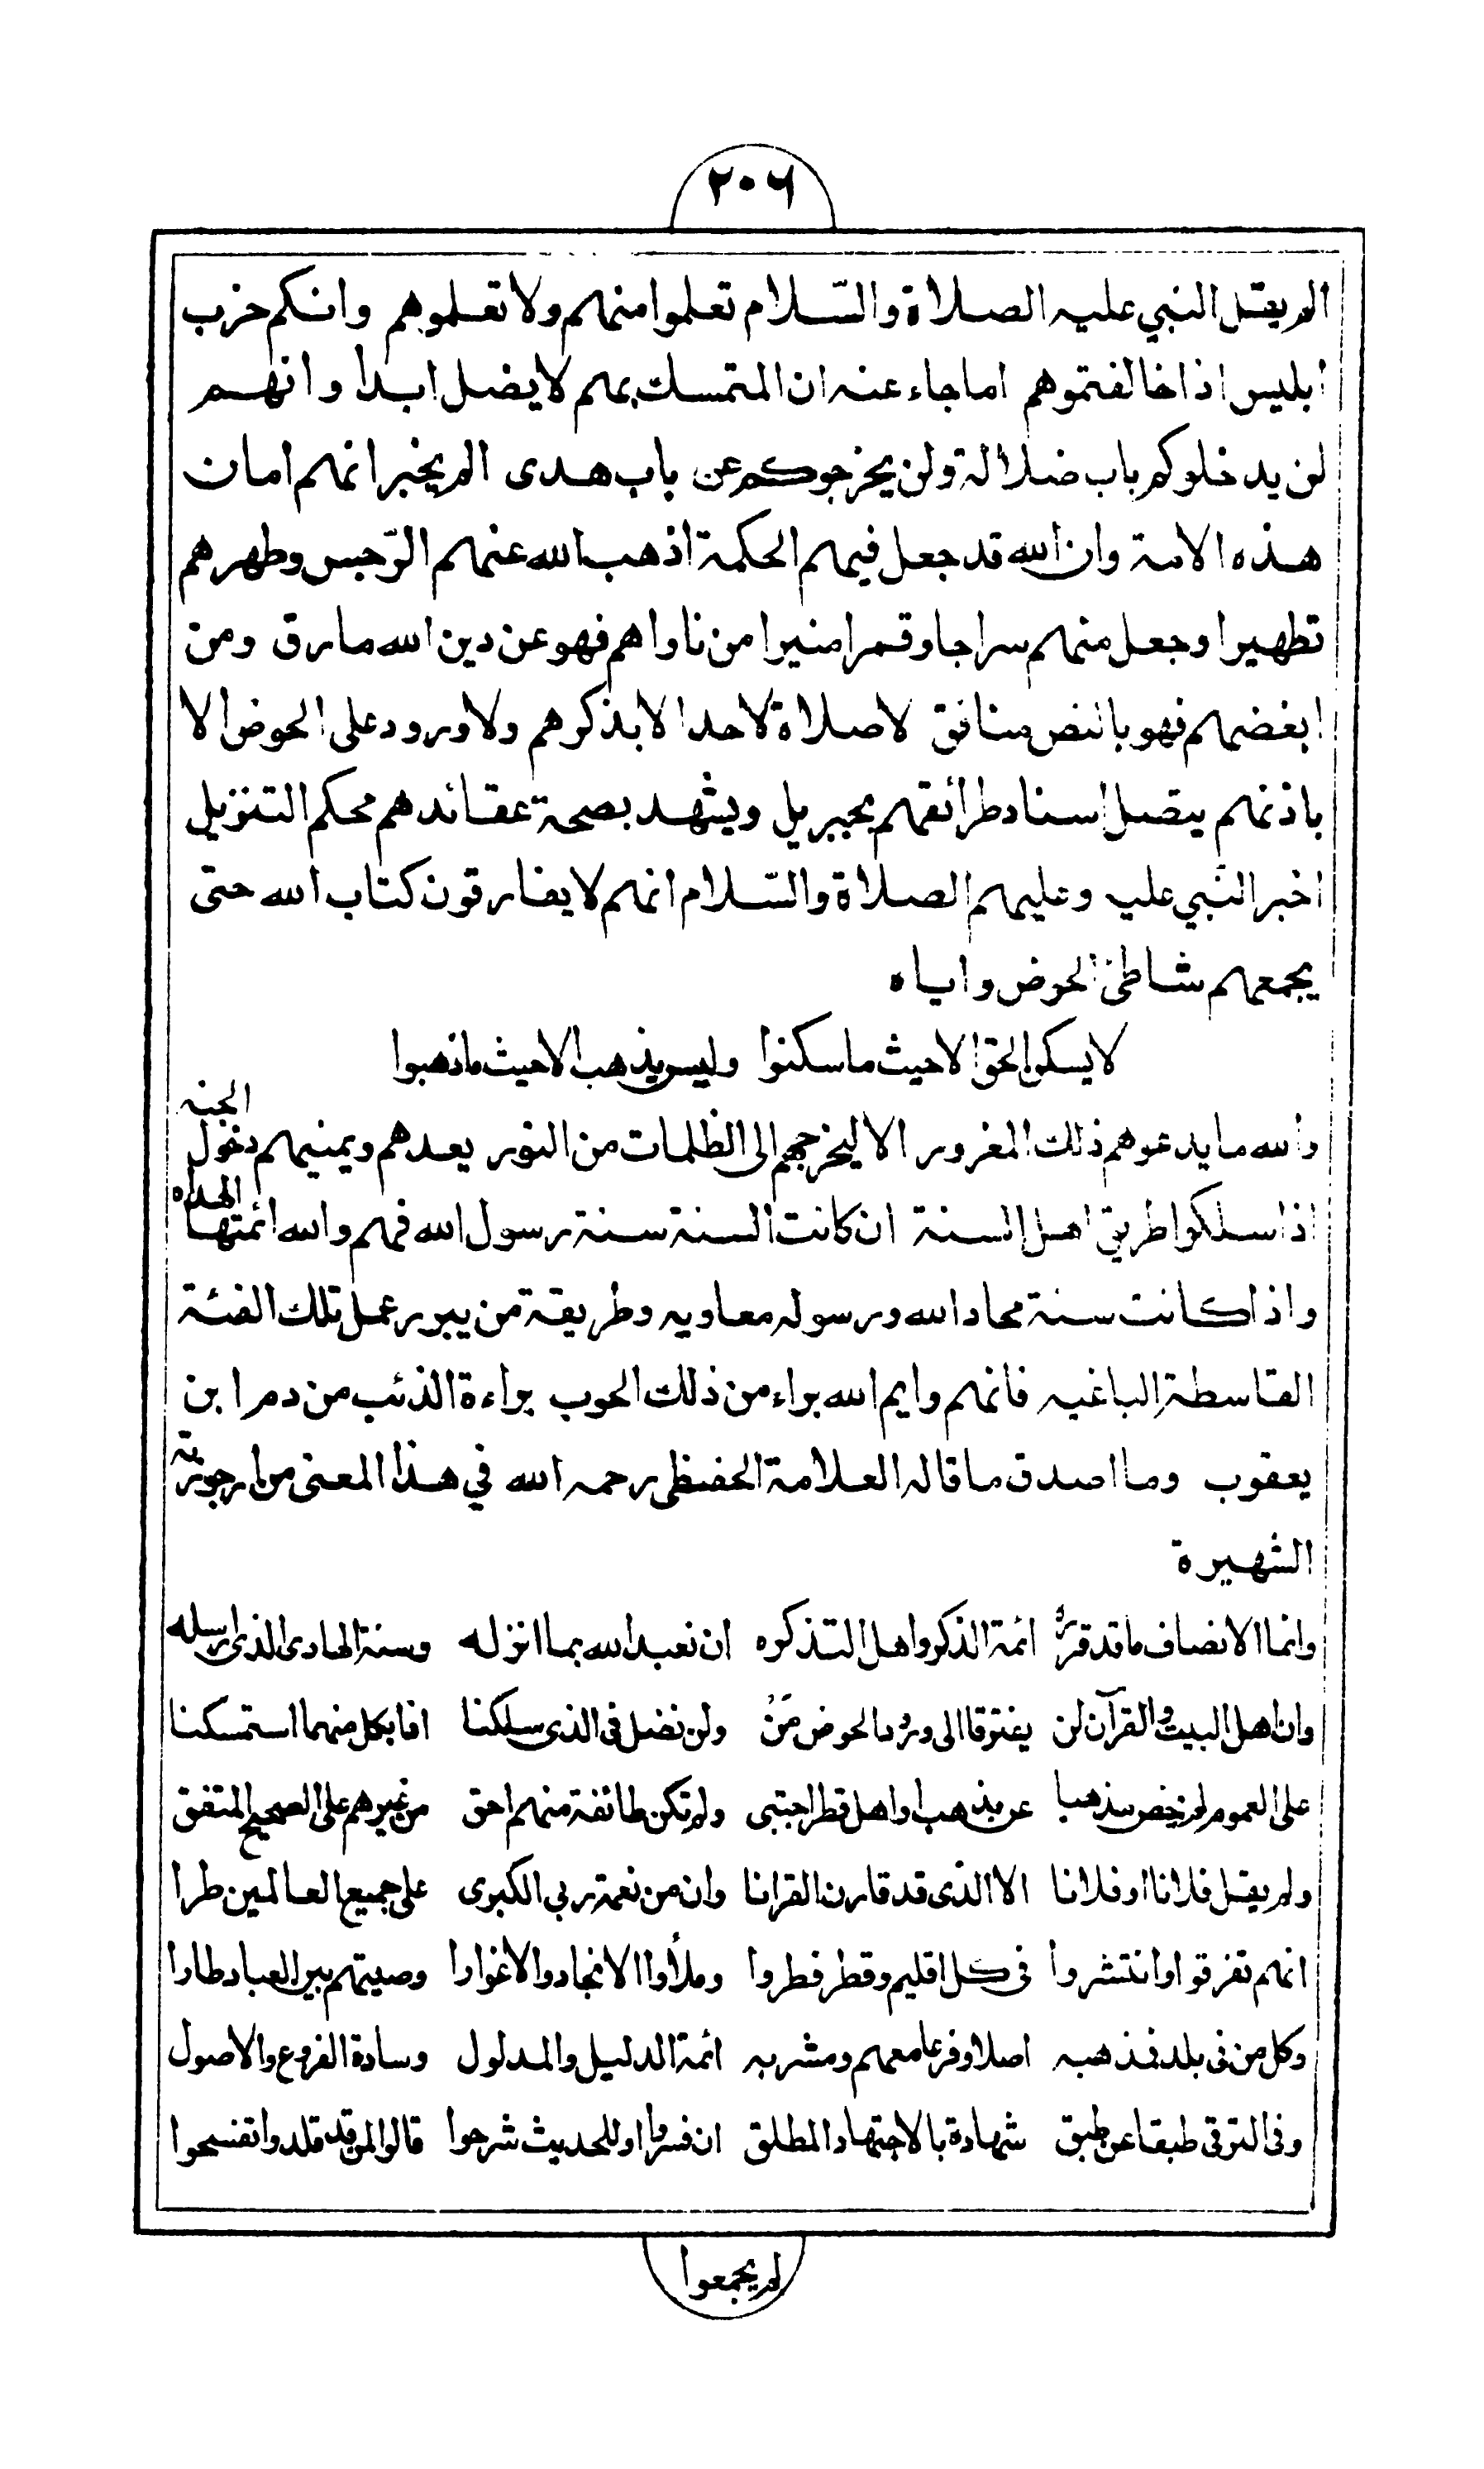 ٢٠٦
الم يقل النبي عليه الصلاة والسّلام تعلموا منهم ولا تعلموهم وانكم حزب
ابليس اذا خالفتموهم اما جاء عنه ان المتمسك بهم لا يضل ابدا وانهم
لن يدخلوكم باب ضلالة ولن يخرجوكم عن باب هدى الم يخبر انهم امان
هذه الامة وان الله قد جعل فيهم الحكمة اذهب الله عنهم الرّجس وطهرهم
تطهيرا وجعل منهم سراجا وقمرا منيرا من ناواهم فهو عن دين الله مارق ومن
ابغضهم فهو بالنص منافق لا صلاة لاحد الا بذكرهم ولا ورود على الحوض الا
باذنهم يتصل اسناد طرائقهم بجبريل ويشهد بصحة عقائدهم محكم التنزيل
اخبر النبي عليه وعليهم الصلاة والسّلام انهم لا يفارقون كتاب الله حتى
يجمعهم شاطئ الحوض واياه
لا يسكن الحق الا حيث ما سكنوا وليس يذهب الا حيث ما ذهبوا
والله ما يدعوهم ذلك المغرور الا ليخرجهم الى الظلمات من النور يعدهم ويمنيهم دخول الجنه
اذا سلكوا طريق اهل السنة ان كانت السنة سنة رسول الله فهم والله ائمتها الهداه
واذا كانت سنة محاد الله ورسوله معاويه وطريقة من يبرر عمل تلك الفئة
القاسطة الباغيه فانهم وايم الله براء من ذلك الحوب براءة الذئب من دم ابن
يعقوب وما اصدق ما قاله العلامة الحفظي رحمه الله في هذا المعنى من ارجوزته
الشهيرة
وانما الانصاف ما قد قرره ائمة الذكر واهل التذكره ان نعبد الله بما انزله وسنة الهادى الذى ارسله
وان اهل البيت والقرآن لن يفترقا الى ورود الحوض مَنْ ولن نضل فى الذى سلكنا اذا بكل منهما استمسكنا
على العموم لم نخص مذهبا عن مذهب او اهل قطر اجتبى ولم تكن طائفة منهم احق من غيرهم على الصحيح المتفق
ولم يقل فلانا او فلانا الا الذى قد قارن القرانا وان من نعمة ربي الكبرى على جميع العالمين طرا
انهم تفرقوا وانتشروا فى كل اقليم وقطر فطروا وملأوا الانجاد والاغوارا وصيتهم بين العباد طارا
وكل من فى بلد فمذهبه اصلا وفرعا معهم ومشربه ائمة الدليل والمدلول وسادة الفروع والاصول
وفى الترقى طبقا عن طبق شهادة بالاجتهاد المطلق ان فسروا او للحديث شرحوا قالوا لمن قد قلدوا تفسحوا
لم يجمعوا